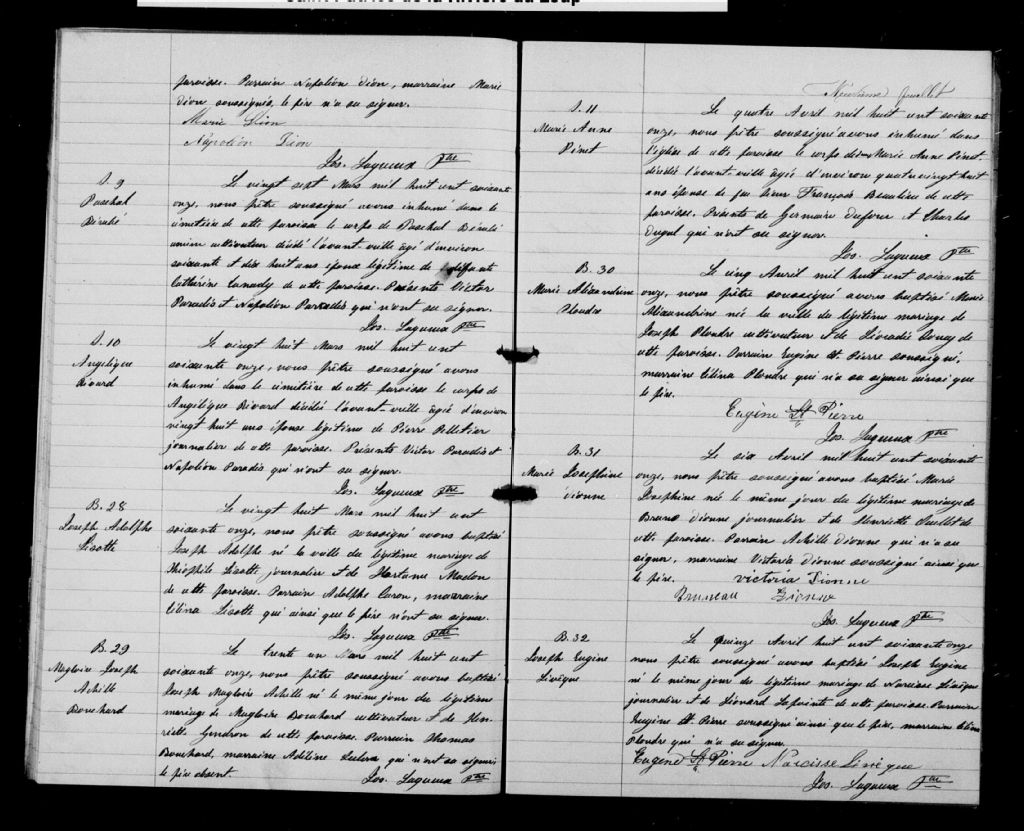 Saint-Patrice de la Rivière du Loup
paroisse. Parrain Napoléon Dion, marraine Marie
Dion soussignés, le père n'a su signer.
Marie Dion
Napoléon Dion
Jos. Lagueux Ptre
S. 9
Paschal
Bérubé
Le vingt sept Mars mil huit cent soixante
onze, nous prêtre soussigné avons inhumé dans le
cimetière de cette paroisse le corps de Paschal Bérubé
ancien cultivateur décédé l'avant-veille âgé d'environ
soixante et dix huit ans époux légitime de défunte
Cathérine Canady de cette paroisse. Présents Victor
Paradis et Napoléon Paradis qui n'ont su signer.
Jos. Lagueux Ptre
S. 10
Angélique
Rivard
Le vingt huit Mars mil huit cent
soixante onze, nous prêtre soussigné avons
inhumé dans le cimetière de cette paroisse le corps de
Angélique Rivard décédée l'avant-veille âgée d'environ
vingt huit ans épouse légitime de Pierre Pelletier
journalier de cette paroisse. Présents Victor Paradis et
Napoléon Paradis qui n'ont su signer.
Jos. Lagueux Ptre
B. 28
Joseph Adolphe
Lizotte
Le vingt huit Mars mil huit cent
soixante onze, nous prêtre soussigné avons baptisé
Joseph Adolphe né la veille du légitime mariage de
Théophile Lizotte journalier et de Hortance
de cette paroisse. Parrain Adolphe Caron, marraine
Célina Lizotte qui ainsi que le père n'ont su signer.
Jos. Lagueux Ptre
B. 29
Magloire-Joseph
Achille
Bouchard
Le trente un Mars mil huit cent
soixante onze, nous prêtre soussigné avons baptisé
Joseph Magloire Achille né le même jour du légitime
mariage de Magloire Bouchard cultivateur et de Hen-
riette Gendron de cette paroisse. Parrain Thomas
Bouchard, marraine Adéline qui n'ont su signer
le père absent.
Jos. Lagueux Ptre
Neuvième feuillet
S. 11
Marie Anne
Pinet
Le quatre Avril mil huit cent soixante
onze, nous prêtre soussigné avons inhumé dans
l'église de cette paroisse le corps de Marie Anne Pinet
décédée l'avant-veille âgée d'environ quatrevingt huit
ans épouse de feu Sieur François Beaulieu de cette
paroisse. Présents de Germain Dufour et Charles
Dugal qui n'ont su signer.
Jos. Lagueux Ptre
B. 30
Marie Alexandrine
Plourde
Le cinq Avril mil huit cent soixante
onze, nous prêtre soussigné avons baptisé Marie
Alexandrine née la veille du légitime mariage de
Joseph Plourde cultivateur et de Léocadie Soucy de
cette paroisse. Parrain Eugène St Pierre soussigné,
marraine Célina Plourde qui n'a su signer ainsi que
le père.
Eugène St Pierre
Jos. Lagueux Ptre
B. 31
Marie Josephine
Dionne
Le six Avril mil huit cent soixante
onze, nous prêtre soussigné avons baptisé Marie
Josephine né le même jour du légitime mariage de
Bruno Dionne journalier et de Henriette Ouellet de
cette paroisse. Parrain Achille Dionne qui n'a su
signer, marraine Victoria Dionne soussigné ainsi que
le père. Victoria Dionne
Bruneau Dionne
Jos. Lagueux Ptre
B. 32
Joseph Eugène
Lévêque
Le Quinze Avril huit cent soixante onze
nous prêtre soussigné avons baptisé Joseph Eugène
né le même jour du légitime mariage de Narcisse Lévêque
journalier et de Léonard Lapointe de cette paroisse. Parrain
Eugène St Pierre soussigné ainsi que le père, marraine Célina
Plourde qui n'a su signer.
Eugène St Pierre Narcisse Lévêque
Jos. Lagueux Ptre